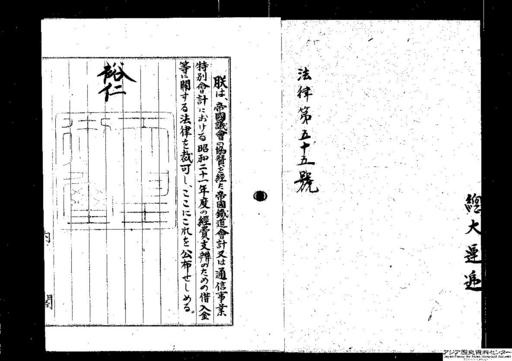 法律第五十五號
總大運遞
朕は、帝國議會の協賛を経た帝國鐵道會計又は通信事業
特別會計における昭和二十一年度の經費支辨のための借入金
等に關する法律を裁可し、ここにこれを公布せしめる。
裕仁
内閣
アジア歴史資料センター